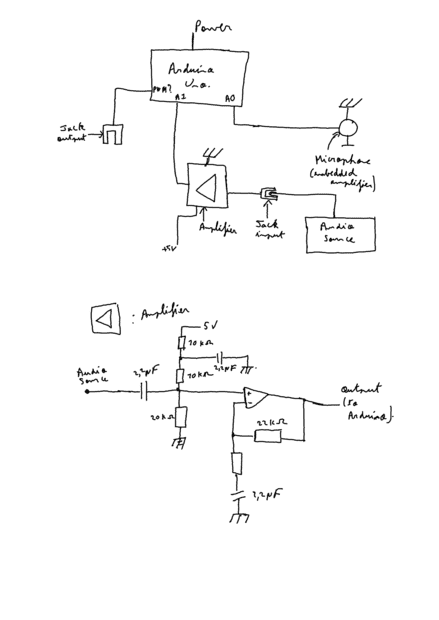 Power
Arduino
Uno.
PWM?
A1
A0
Jack
output
Microphone
(embedded
amplifier)
+5V
Amplifier
Jack
input
Audio
Source
: Amplifier
5V
10 KΩ
2,2µF
Audio
Source
2,2µF
10KΩ
20KΩ
+
-
22KΩ
Output
(to
Arduino).
2,2µF